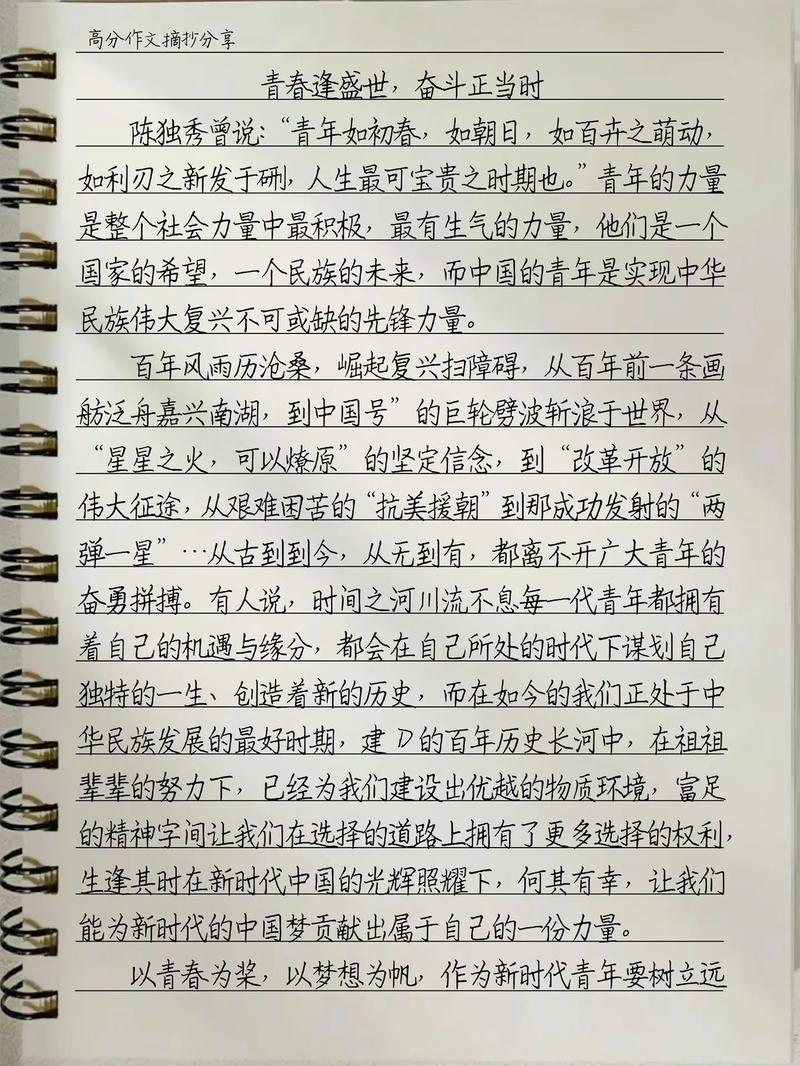 高分作文摘抄分享
青春逢盛世，奋斗正当时
陈独秀曾说：“青年如初春，如朝日，如百卉之萌动，
如利刃之新发于硎，人生最可宝贵之时期也。”青年的力量
是整个社会力量中最积极，最有生气的力量，他们是一个
国家的希望，一个民族的未来，而中国的青年是实现中华
民族伟大复兴不可或缺的先锋力量。
百年风雨历沧桑，崛起复兴扫障碍，从百年前一条画
舫泛舟嘉兴南湖，到中国号”的巨轮劈波斩浪于世界，从
“星星之火，可以燎原”的坚定信念，到“改革开放”的
伟大征途，从艰难困苦的“抗美援朝”到那成功发射的“两
弹一星”…从古到到今，从无到有，都离不开广大青年的
奋勇拼搏。有人说，时间之河川流不息每一代青年都拥有
着自己的机遇与缘分，都会在自己所处的时代下谋划自己
独特的一生、创造着新的历史，而在如今的我们正处于中
华民族发展的最好时期，建D的百年历史长河中，在祖祖
辈辈的努力下，已经为我们建设出优越的物质环境，富足
的精神字间让我们在选择的道路上拥有了更多选择的权利，
生逢其时在新时代中国的光辉照耀下，何其有幸，让我们
能为新时代的中国梦贡献出属于自己的一份力量。
以青春为桨，以梦想为帆，作为新时代青年要树立远